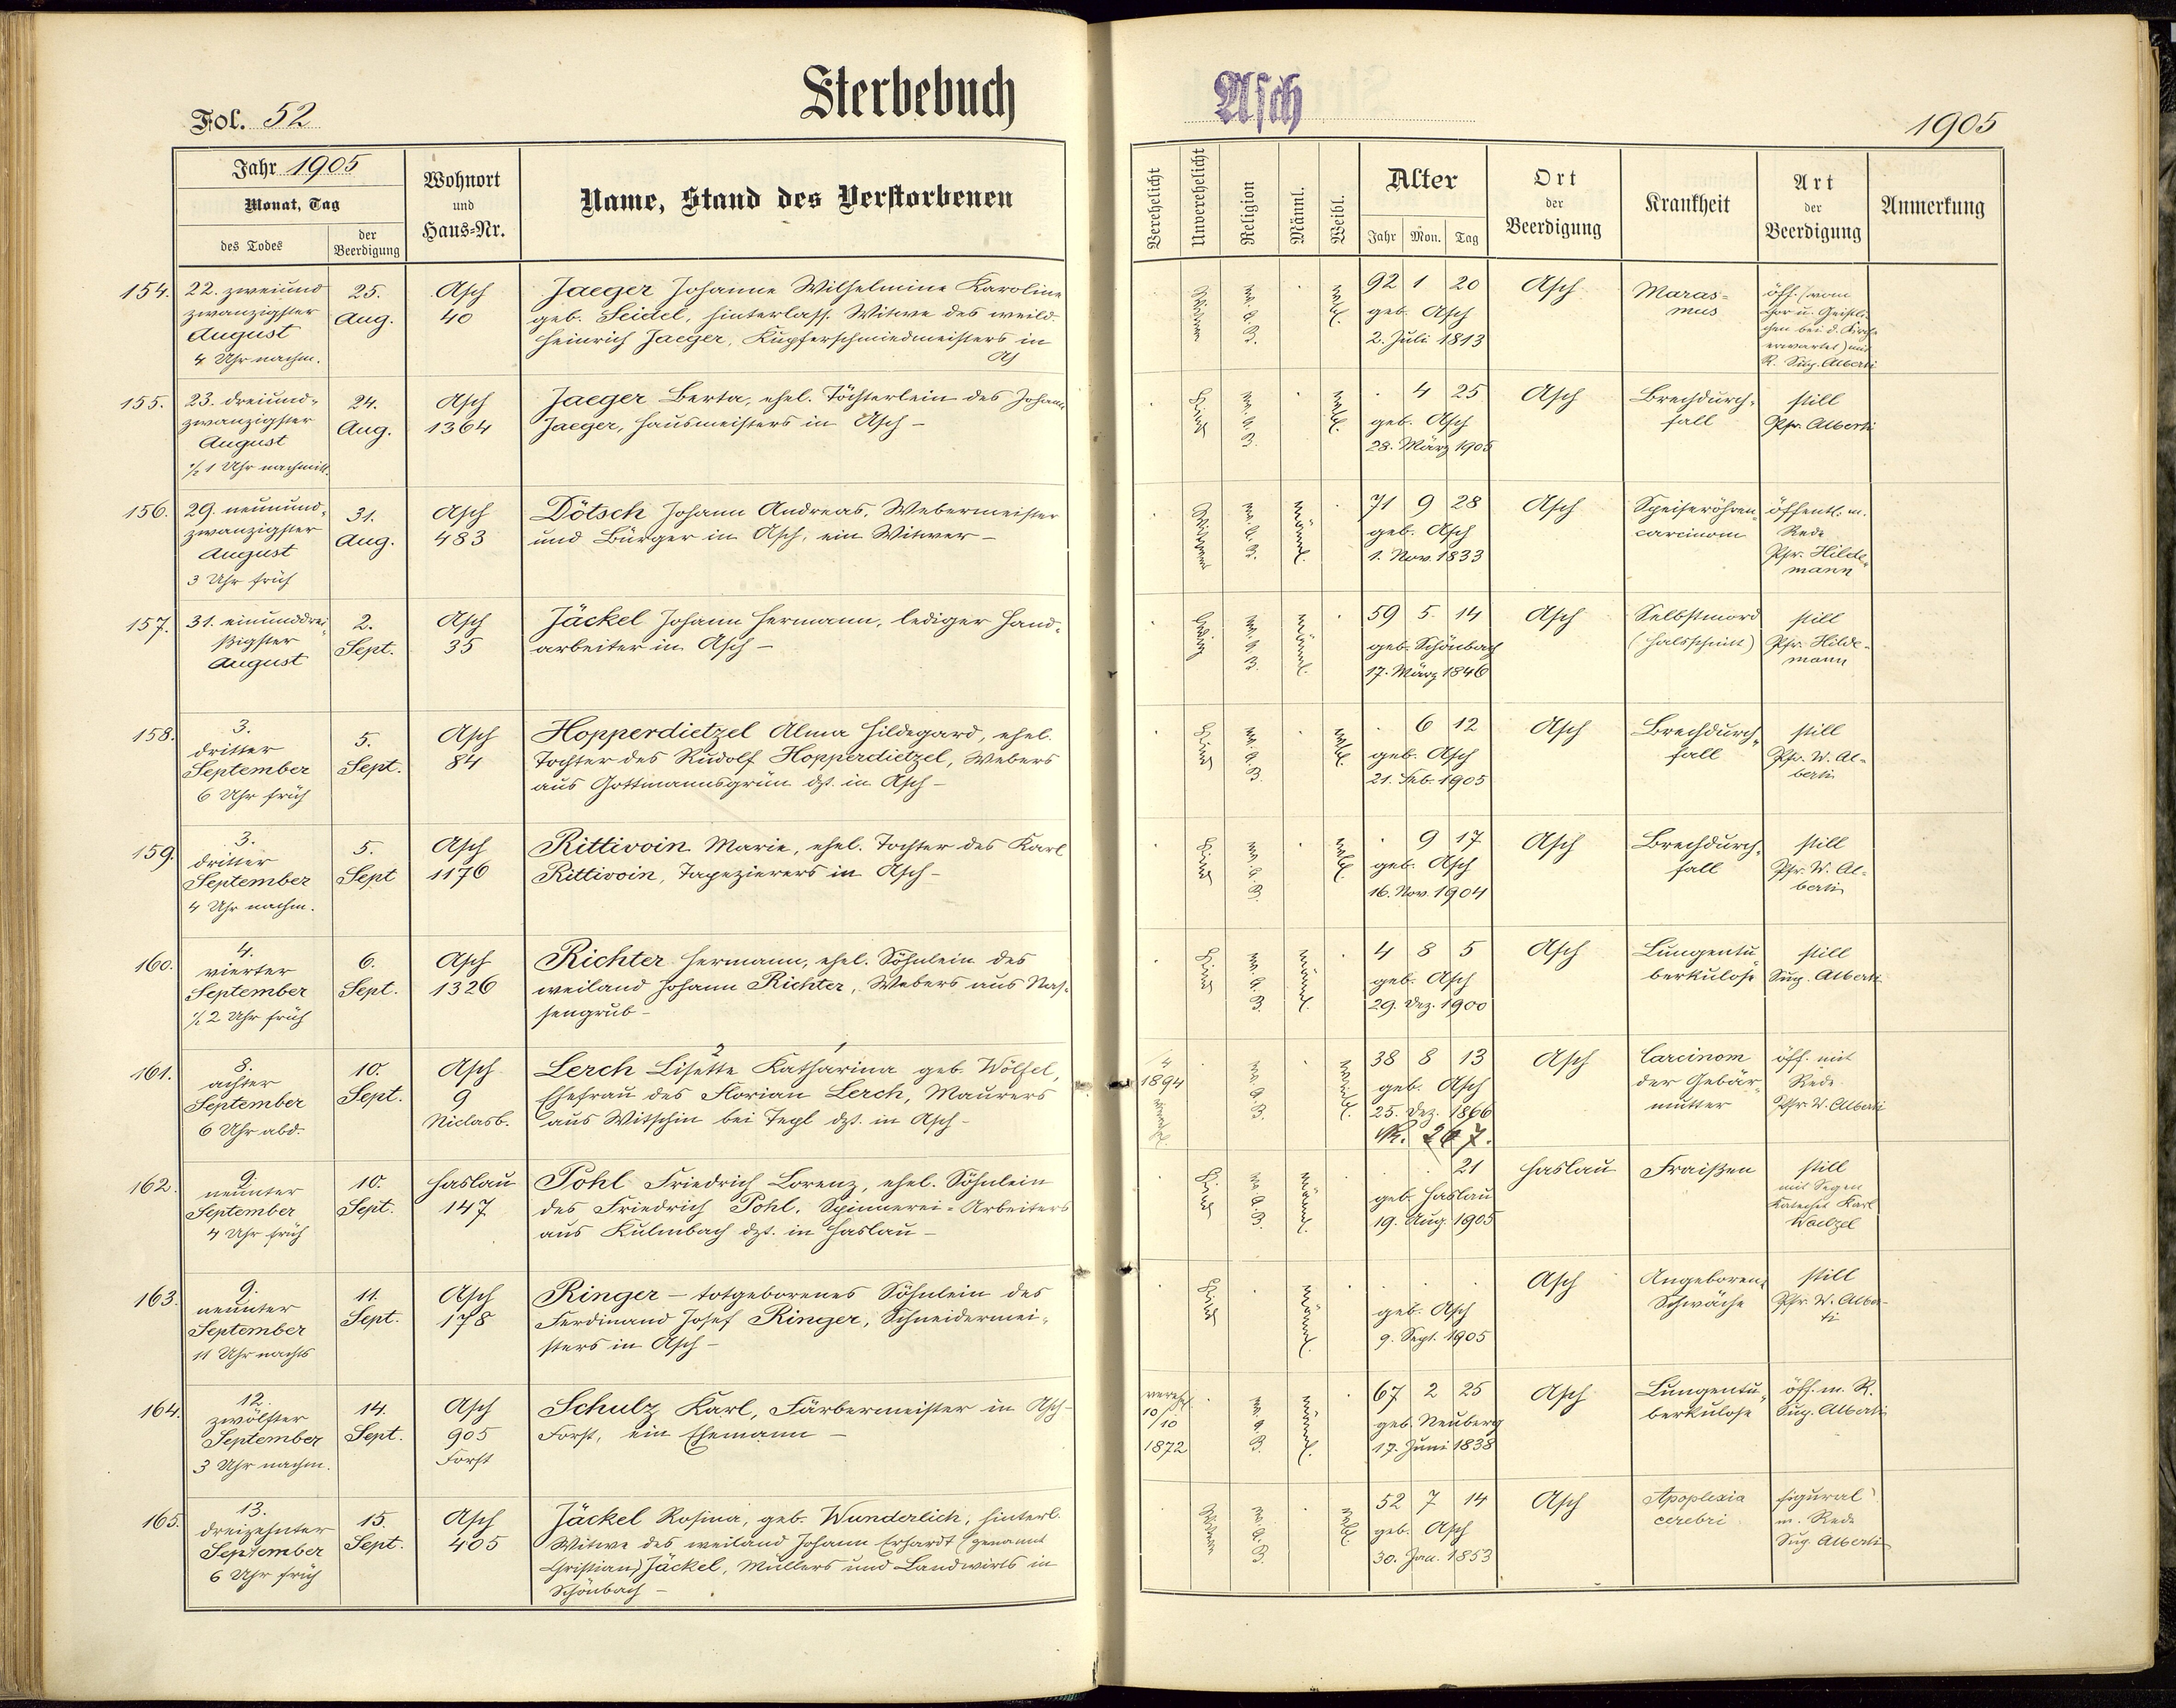 Fol. 52
Sterbebuch
Jahr 1905
Monat, Tag
des Todes
der
Beerdigung
Wohnort
und
Haus=Nr.
Name, Stand des Verstorbenen
154.
22. zweiund
zwanzigster
August
4 Uhr nachm.
25.
Aug.
Asch
40
Jaeger Johanne Wilhelmine Karoline
geb. Seidel, hinterlass. Witwe des weild.
Heinrich Jaeger, Kupferschmiedmeisters in
155.
23. dreiund=
zwanzigster
August
½ 1 Uhr nachmitt.
24.
Aug.
Asch
1364
Jaeger Berta, ehel. Töchterlein des Johann
Jaeger, Hausmeisters in Asch –
156.
29. neunund=
zwanzigster
August
3 Uhr früh
31.
Aug.
Asch
483
Dötsch Johann Andreas, Webermeister
und Bürger in Asch, ein Witwer –
157.
31. einunddrei=
ßigster
August
2.
Sept.
Asch
35
Jäckel Johann Hermann, lediger Hand=
arbeiter in Asch –
158.
3.
dritter
September
6 Uhr früh
5.
Sept.
Asch
84
Hopperdietzel Alma Hildegard, ehel.
Tochter des Rudolf Hopperdietzel, Webers
aus Gottmannsgrün dzt. in Asch –
159.
3.
dritter
September
4 Uhr nachm.
5.
Sept
Asch
1176
Rittivoin Marie, ehel. Tochter des Karl
Rittivoin, Tapezierers in Asch –
160.
4.
vierter
September
½ 2 Uhr früh
6.
Sept.
Asch
1326
Richter Hermann, ehel. Söhnlein des
weiland Johann Richter, Webers aus Nas=
sengrub –
161.
8.
achter
September
6 Uhr abd.
10.
Sept.
Asch
9
Niclasb.
2 1
Lerch Lisette Katharina geb. Wölfel,
Ehefrau des Florian Lerch, Maurers
aus Witschin bei Tepl dzt. in Asch –
162.
9.
neunter
September
4 Uhr früh
10.
Sept.
Haslau
147
Pohl Friedrich Lorenz, ehel. Söhnlein
des Friedrich Pohl, Spinnerei=Arbeiters
aus Kulmbach dzt. in Haslau –
163.
9.
neunter
September
11 Uhr nachts
11.
Sept.
Asch
178
Ringer – totgeborenes Söhnlein des
Ferdinand Josef Ringer, Schneidermei=
sters in Asch –
164.
12.
zwölfter
September
3 Uhr nachm.
14.
Sept.
Asch
905
Forst
Schulz Karl, Färbermeister in Asch=
Forst, ein Ehemann –
165.
13.
dreizehnter
September
6 Uhr früh
15.
Sept.
Asch
405
Jäckel Rosina, geb. Wunderlich, hinterl.
Witwe des weiland Johann Erhardt (genannt
Christian) Jäckel, Müllers und Landwirts in
Schönbach –
Asch
1905
Verehelicht
Unverehelicht
Religion
Männl.
Weibl.
Alter
Jahr
Mon.
Tag
Ort
der
Beerdigung
Krankheit
Art
der
Beerdigung
Anmerkung
Witwe
ev. A. B.
weibl.
92 1 20
geb. Asch
2. Juli 1813
Asch
Maras=
mus
öff. (vom
Chor u. Geistli=
chen bei d. Kirche
erwartet) mit
R. Sup. Alberti
Kind
ev. A. B.
weibl.
4 25
geb. Asch
28. März 1905
Asch
Brechdurch=
fall
still
Pfr. Alberti
Witwer
ev. A. B.
männl.
71 9 28
geb. Asch
1. Nov. 1833
Asch
Speiseröhren=
carcinom
öffentl. m.
Rede
Pfr. Hilde=
mann
ledig
ev. A. B.
männl.
59 5 14
geb. Schönbach
17. März 1846
Asch
Selbstmord
(Halsschnitt)
still
Pfr. Hilde=
mann
Kind
ev. A. B.
weibl.
6 12
geb. Asch
21. Feb. 1905
Asch
Brechdurch=
fall
still
Pfr. W. Al=
berti
Kind
ev. A. B.
weibl.
9 17
geb. Asch
16. Nov. 1904
Asch
Brechdurch=
fall
still
Pfr. W. Al=
berti
Kind
ev. A. B.
männl.
4 8 5
geb. Asch
29. Dez. 1900
Asch
Lungentu=
berkulose
still
Sup. Alberti
1894
ev. A. B.
weibl.
38 8 13
geb. Asch
25. Dez. 1866
Asch
Carcinom
der Gebär=
mutter
öff. mit
Rede
Pfr. W. Alberti
Kind
ev. A. B.
männl.
21
geb. Haslau
19. Aug. 1905
Haslau
Fraißen
still
mit Segen
Katechet Karl
Waelzel
Kind
männl.
geb. Asch
9. Sept. 1905
Asch
Angeborene
Schwäche
still
Pfr. W. Alber=
ti
vereh.
10/10
1872
ev. A. B.
männl.
67 2 25
geb. Neuberg
17. Juni 1838
Asch
Lungentu=
berkulose
öff. m. R.
Sup. Alberti
Witwe
ev. A. B.
weibl.
52 7 14
geb. Asch
30. Jan. 1853
Asch
Apoplexia
cerebri
figural
m. Rede
Sup. Alberti